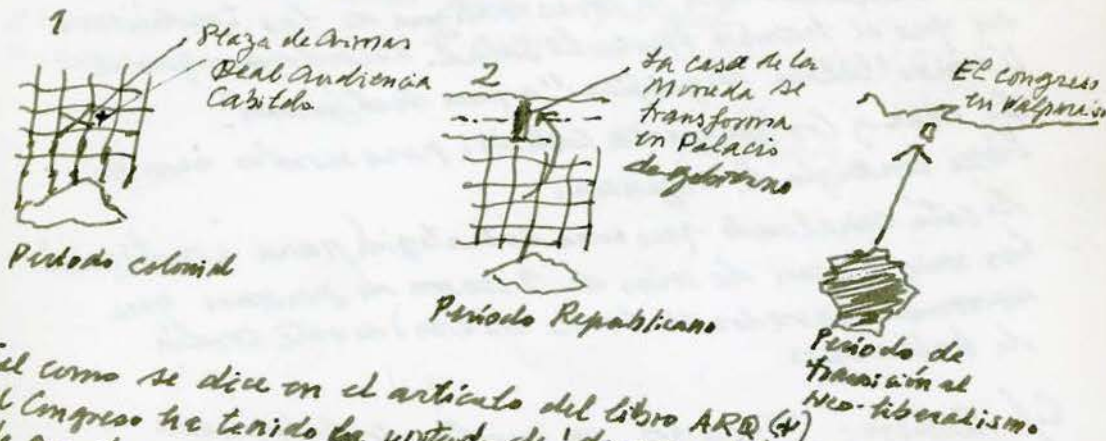 1
Plaza de Armas
Real Audiencia
Cabildo
Período colonial
2
La casa de la
Moneda se
transforma
en Palacio
de gobierno
Período Republicano
El congreso
en Valparaíso
Período de
transición al
Neo-liberalismo
Tal como se dice en el artículo del libro ARQ (+)
el Congreso ha tenido la